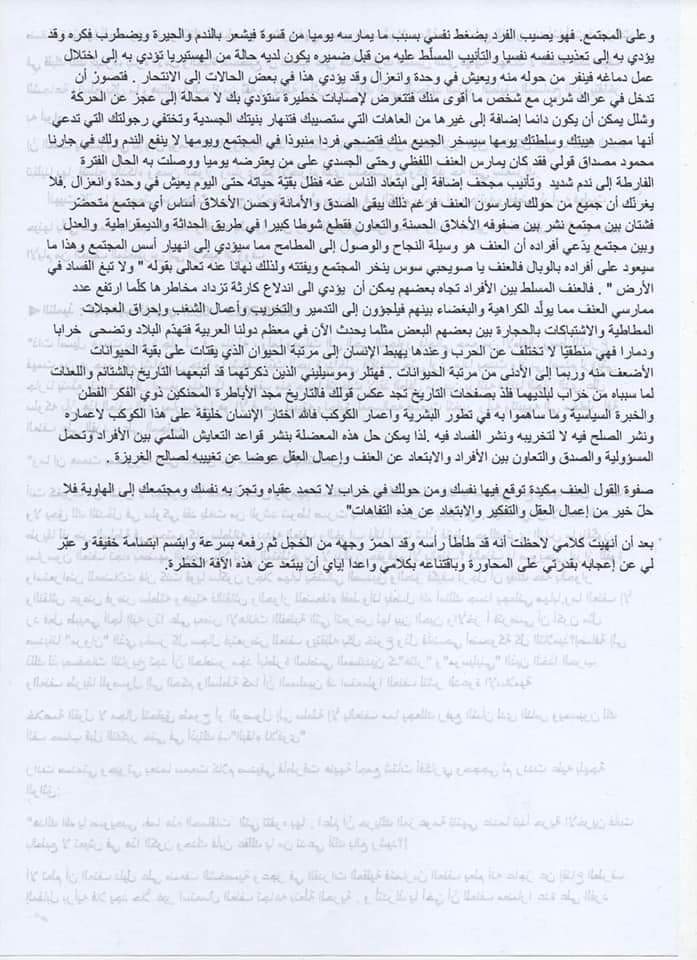 وعلى المجتمع. فهو يصيب الفرد بضغط نفسي بسبب ما يمارسه يوميا من قسوة فيشعر بالندم والحيرة ويضطرب فكره وقد
يؤدي به إلى تعذيب نفسه نفسيا والتأنيب المسلّط عليه من قبل ضميره يكون لديه حالة من الهستيريا تؤدي به إلى إختلال
عمل دماغه فينفر من حوله منه ويعيش في وحدة وانعزال وقد يؤدي هذا في بعض الحالات إلى الانتحار . فتصور أن
تدخل في عراك شرس مع شخص ما أقوى منك فتتعرض لإصابات خطيرة ستؤدي بك لا محالة إلى عجز عن الحركة
وشلل يمكن أن يكون دائما إضافة إلى غيرها من العاهات التي ستصيبك فتنهار بنيتك الجسدية وتختفي رجولتك التي تدعي
أنها مصدر هيبتك وسلطتك يومها سيسخر الجميع منك فتضحي فردا منبوذا في المجتمع ويومها لا ينفع الندم ولك في جارنا
محمود مصداق قولي فقد كان يمارس العنف اللفظي وحتى الجسدي على من يعترضه يوميا ووصلت به الحال الفترة
الفارطة إلى ندم شديد وتأنيب مجحف إضافة إلى ابتعاد الناس عنه فظل بقيّة حياته حتى اليوم يعيش في وحدة وانعزال .فلا
يغرنّك أن جميع من حولك يمارسون العنف فرغم ذلك يبقى الصدق والأمانة وحسن الأخلاق أساس أي مجتمع متحضر
فشتان بين مجتمع نشر بين صفوفه الأخلاق الحسنة والتعاون فقطع شوطا كبيرا في طريق الحداثة والديمقراطية. والعدل
وبين مجتمع يدّعي أفراده أن العنف هو وسيلة النجاح والوصول إلى المطامح مما سيؤدي إلى انهيار أسس المجتمع وهذا ما
سيعود على أفراده بالوبال فالعنف يا صويحبي سوس ينخر المجتمع ويفتته ولذلك نهانا عنه تعالى بقوله " ولا تبغ الفساد في
الأرض " . فالعنف المسلط بين الأفراد تجاه بعضهم يمكن أن يؤدي الى اندلاع كارثة تزداد مخاطرها كلّما ارتفع عدد
ممارسي العنف مما يولّد الكراهية والبغضاء بينهم فيلجؤون إلى التدمير والتخريب وأعمال الشغب وإحراق العجلات
المطاطية والاشتباكات بالحجارة بين بعضهم البعض مثلما يحدث الآن في معظم دولنا العربية فتهدّم البلاد وتضحى خرابا
ودمارا فهي منطقيّا لا تختلف عن الحرب وعندها يهبط الإنسان إلى مرتبة الحيوان الذي يقتات على بقية الحيوانات
الأضعف منه وربما إلى الأدنى من مرتبة الحيوانات . فهتلر وموسيليني الذين ذكرتهما قد أتبعهما التاريخ بالشتائم واللعنات
لما سبباه من خراب لبلديهما فلذ بصفحات التاريخ تجد عكس قولك فالتاريخ مجد الأباطرة المحنكين ذوي الفكر الفطن
والخبرة السياسية وما ساهموا به في تطور البشرية واعمار الكوكب فالله اختار الإنسان خليفة على هذا الكوكب لاعماره
ونشر الصلح فيه لا لتخريبه ونشر الفساد فيه .لذا يمكن حل هذه المعضلة بنشر قواعد التعايش السلمي بين الأفراد وتحمل
المسؤولية والصدق والتعاون بين الأفراد والابتعاد عن العنف وإعمال العقل عوضا عن تغييبه لصالح الغريزة .
صفوة القول العنف مكيدة توقع فيها نفسك ومن حولك في خراب لا تحمد عقباه وتجرّ به نفسك ومجتمعك إلى الهاوية فلا
حلّ خير من إعمال العقل والتفكير والابتعاد عن هذه التفاهات"
بعد أن أنهيت كلامي لاحظت أنه قد طأطأ رأسه وقد احمرّ وجهه من الخجل ثم رفعه بسرعة وابتسم ابتسامة خفيفة و عبّر
لي عن إعجابه بقدرتي على المحاورة وباقتناعه بكلامي واعدا إياي أن يبتعد عن هذه الآفة الخطرة.